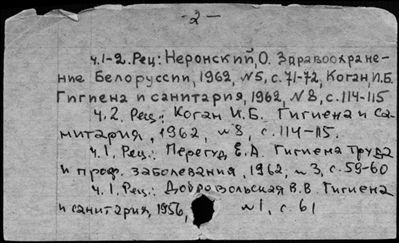 -2-
ч.1-2. Рец: Неронский, О. Здравоохране-
ние Белоруссии, 1962, №5, с.71-72, Коган, И.Б.
Гигиена и санитария, 1962, №8, с.114-115
ч.2. Рец.: Коган И.Б. Гигиена и са-
митария, 1962, №8, с.114-115.
ч.1. Рец.: Перегуд Е.А. Гигиена труда
и проф. заболевания, 1962, №3, с.59-60
ч.1. Рец.: Добровольская В.В. Гигиена
и санитария, 1956, №1, с.61